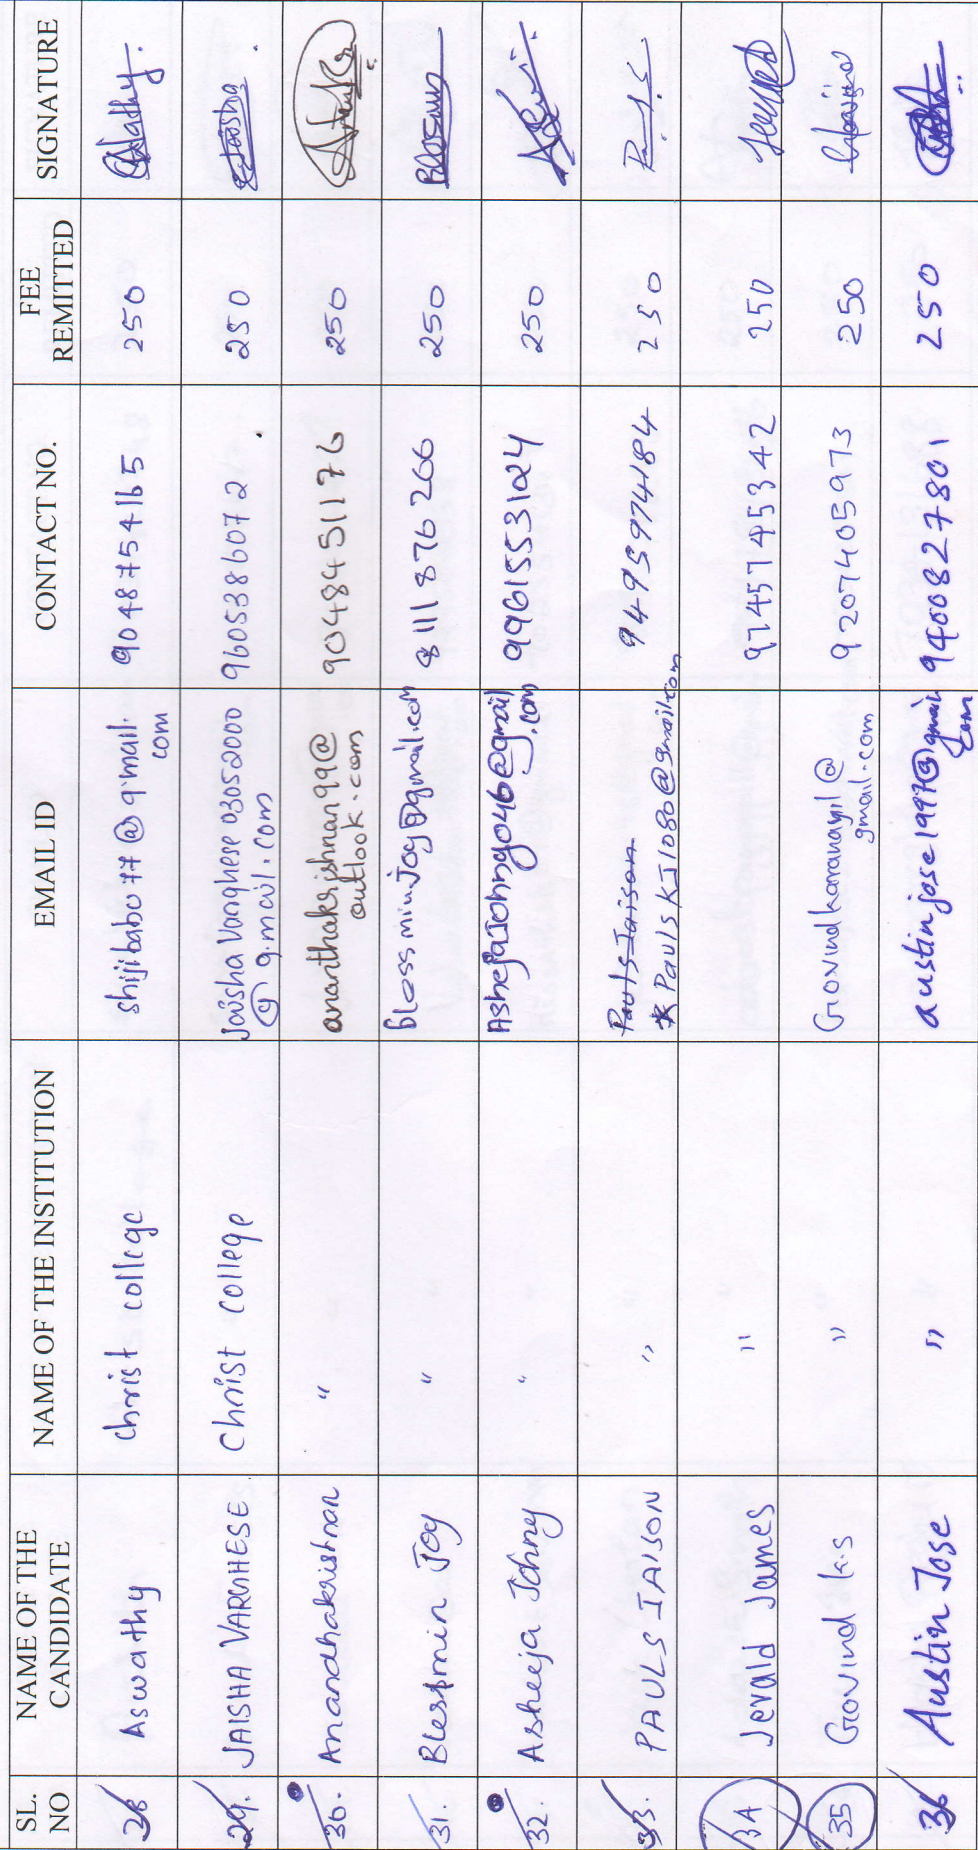 SL. NO	NAME OF THE CANDIDATE	NAME OF THE INSTITUTION	EMAIL ID	CONTACT NO.	FEE REMITTED	SIGNATURE
28	Aswathy	christ college	shijibabu77@gmail.com	9048754165	250
29.	JAISHA VARGHESE	Christ College	Jaisha Varghese 03052000 @ gmail.com	9605386072	250
30.	Anandhakrishnan	"	ananthakrishnan99@outlook.com	9048451176	250
31.	Blessmin Joy	"	blessminjoy@gmail.com	8111876266	250	Blossmy
32.	Asheeja Johny	"	Asheejajohny046@gmail.com	99615531024	250
33.	PAULS JAISON	"	Pauls Jaison * PaulsKJ1080@gmail.com	9495974184	250
34	Jerald James	"	9745745342	250
35	Govind K.S	"	Govindkaranayil@gmail.com	9207405973	250
36	Austin Jose	"	austinjose1997@gmail.com	9400827801	250